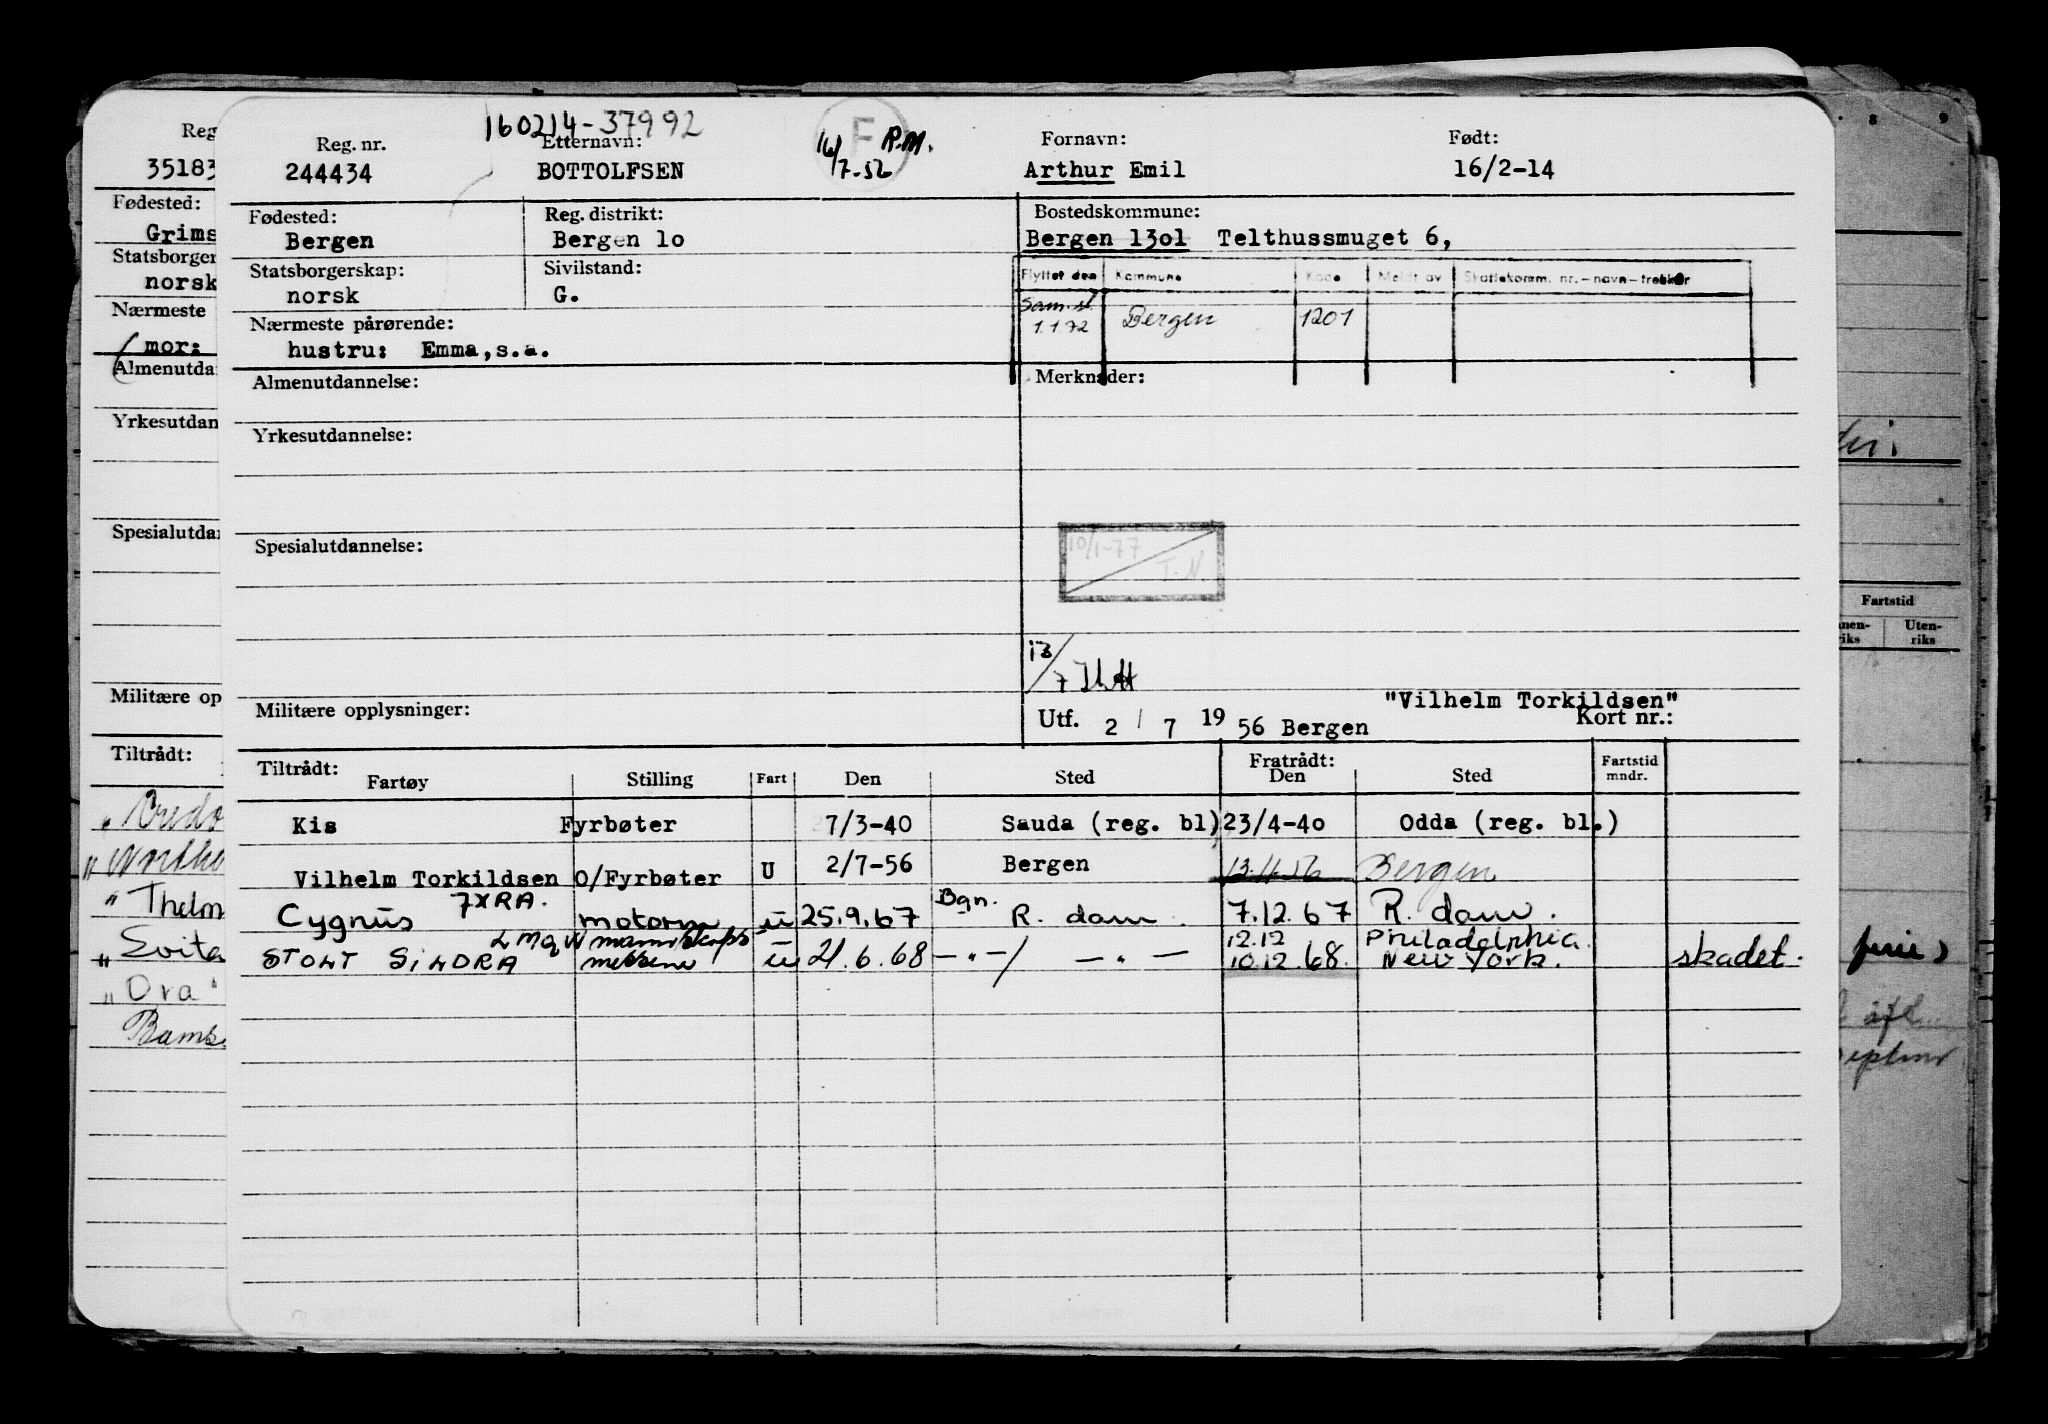 160214-37992
Reg. nr. Etternavn: F R.M. Fornavn: Født:
244434 BOTTOLFSEN 16/7-52 Arthur Emil 16/2-14
Fødested: Reg. distrikt: Bostedskommune:
Bergen Bergen lo Bergen 13ol Telthussmuget 6,
Statsborgerskap: Sivilstand: Flyttet den Kommune Kode Meldt av Skattekomm. nr.-navn-trekkår
norsk G. Sam.sl. 1.1 72 Bergen 1201
Nærmeste pårørende:
hustru: Emma, s.a.
Almenutdannelse: Merknader:
Yrkesutdannelse:
10/1-77 T.N.
Spesialutdannelse:
13/7
Militære opplysninger: "Vilhelm Torkildsen"
Utf. 2 / 7 19 56 Bergen Kort nr.:
Tiltrådt: Fratrådt: Fartstid mndr.
Fartøy Stilling Fart Den Sted Den Sted
Kis Fyrbøter 7/3-40 Sauda (reg. bl) 23/4-4o Odda (reg. bl.)
Vilhelm Torkildsen O/Fyrbøter U 2/7-56 Bergen 13.11.56 Bergen
Cygnus JXRA. motorm u 25.9.67 Bgn. R. dam. 7.12.67 R. dam.
STOLT SINDRA LMQW mannskaps messem u 21.6.68 -"-/ -"- 12.12 10.12.68. Philadelphia. New York. skadet.
Reg
35183
Fødested:
Grims
Statsborger
norsk
Nærmeste
mor:
Almenutda
Yrkesutdan
Spesialutda
Militære op
Tiltrådt:
" Thelm
" Evita
" Ora "
8 9
Fartstid
nen-riks Uten-riks